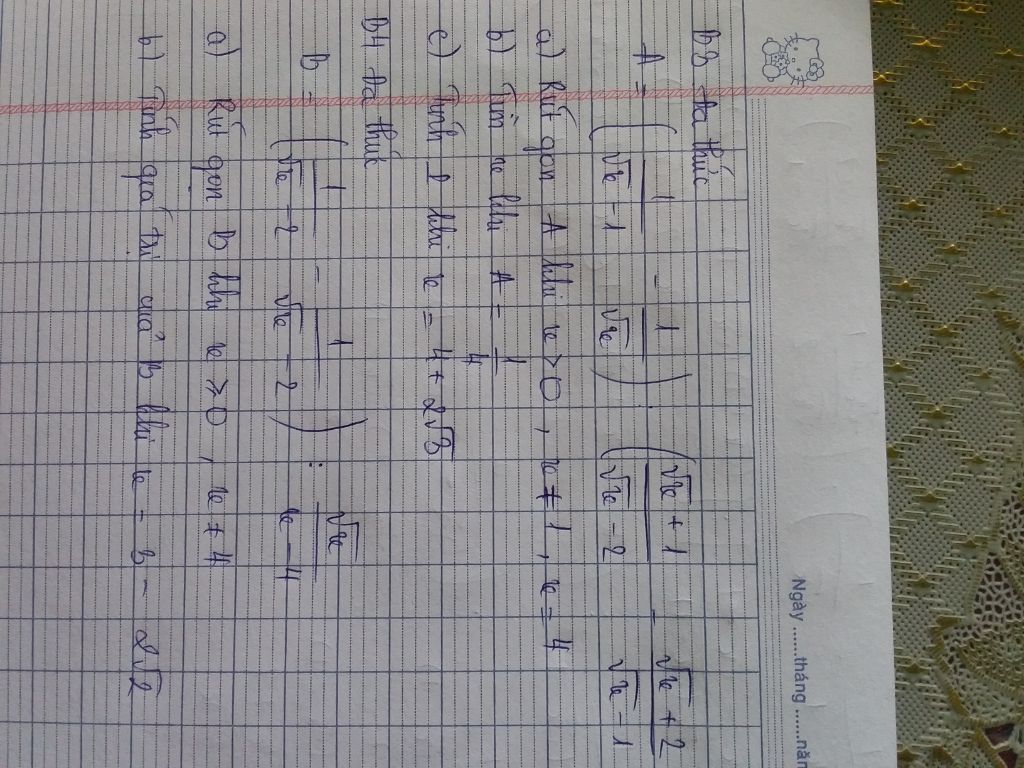 Ngày.......tháng......năm
B3 Đa thức
A = ( 1/(√x - 1) - 1/√x ) : ( (√x + 1)/(√x - 2) - (√x + 2)/(√x - 1)
a) Rút gọn A khi x > 0, x ≠ 1, x = 4
b) Tìm x khi A = 1/4
c) Tính 2 khi x = 4 + 2√3
B4 Đa thức
B = ( 1/(√x - 2) - 1/(√x - 2) ) : √x/(x - 4)
a) Rút gọn B khi x ≥ 0, x ≠ 4
b) Tính giá trị của B khi x = 3 - 2√2